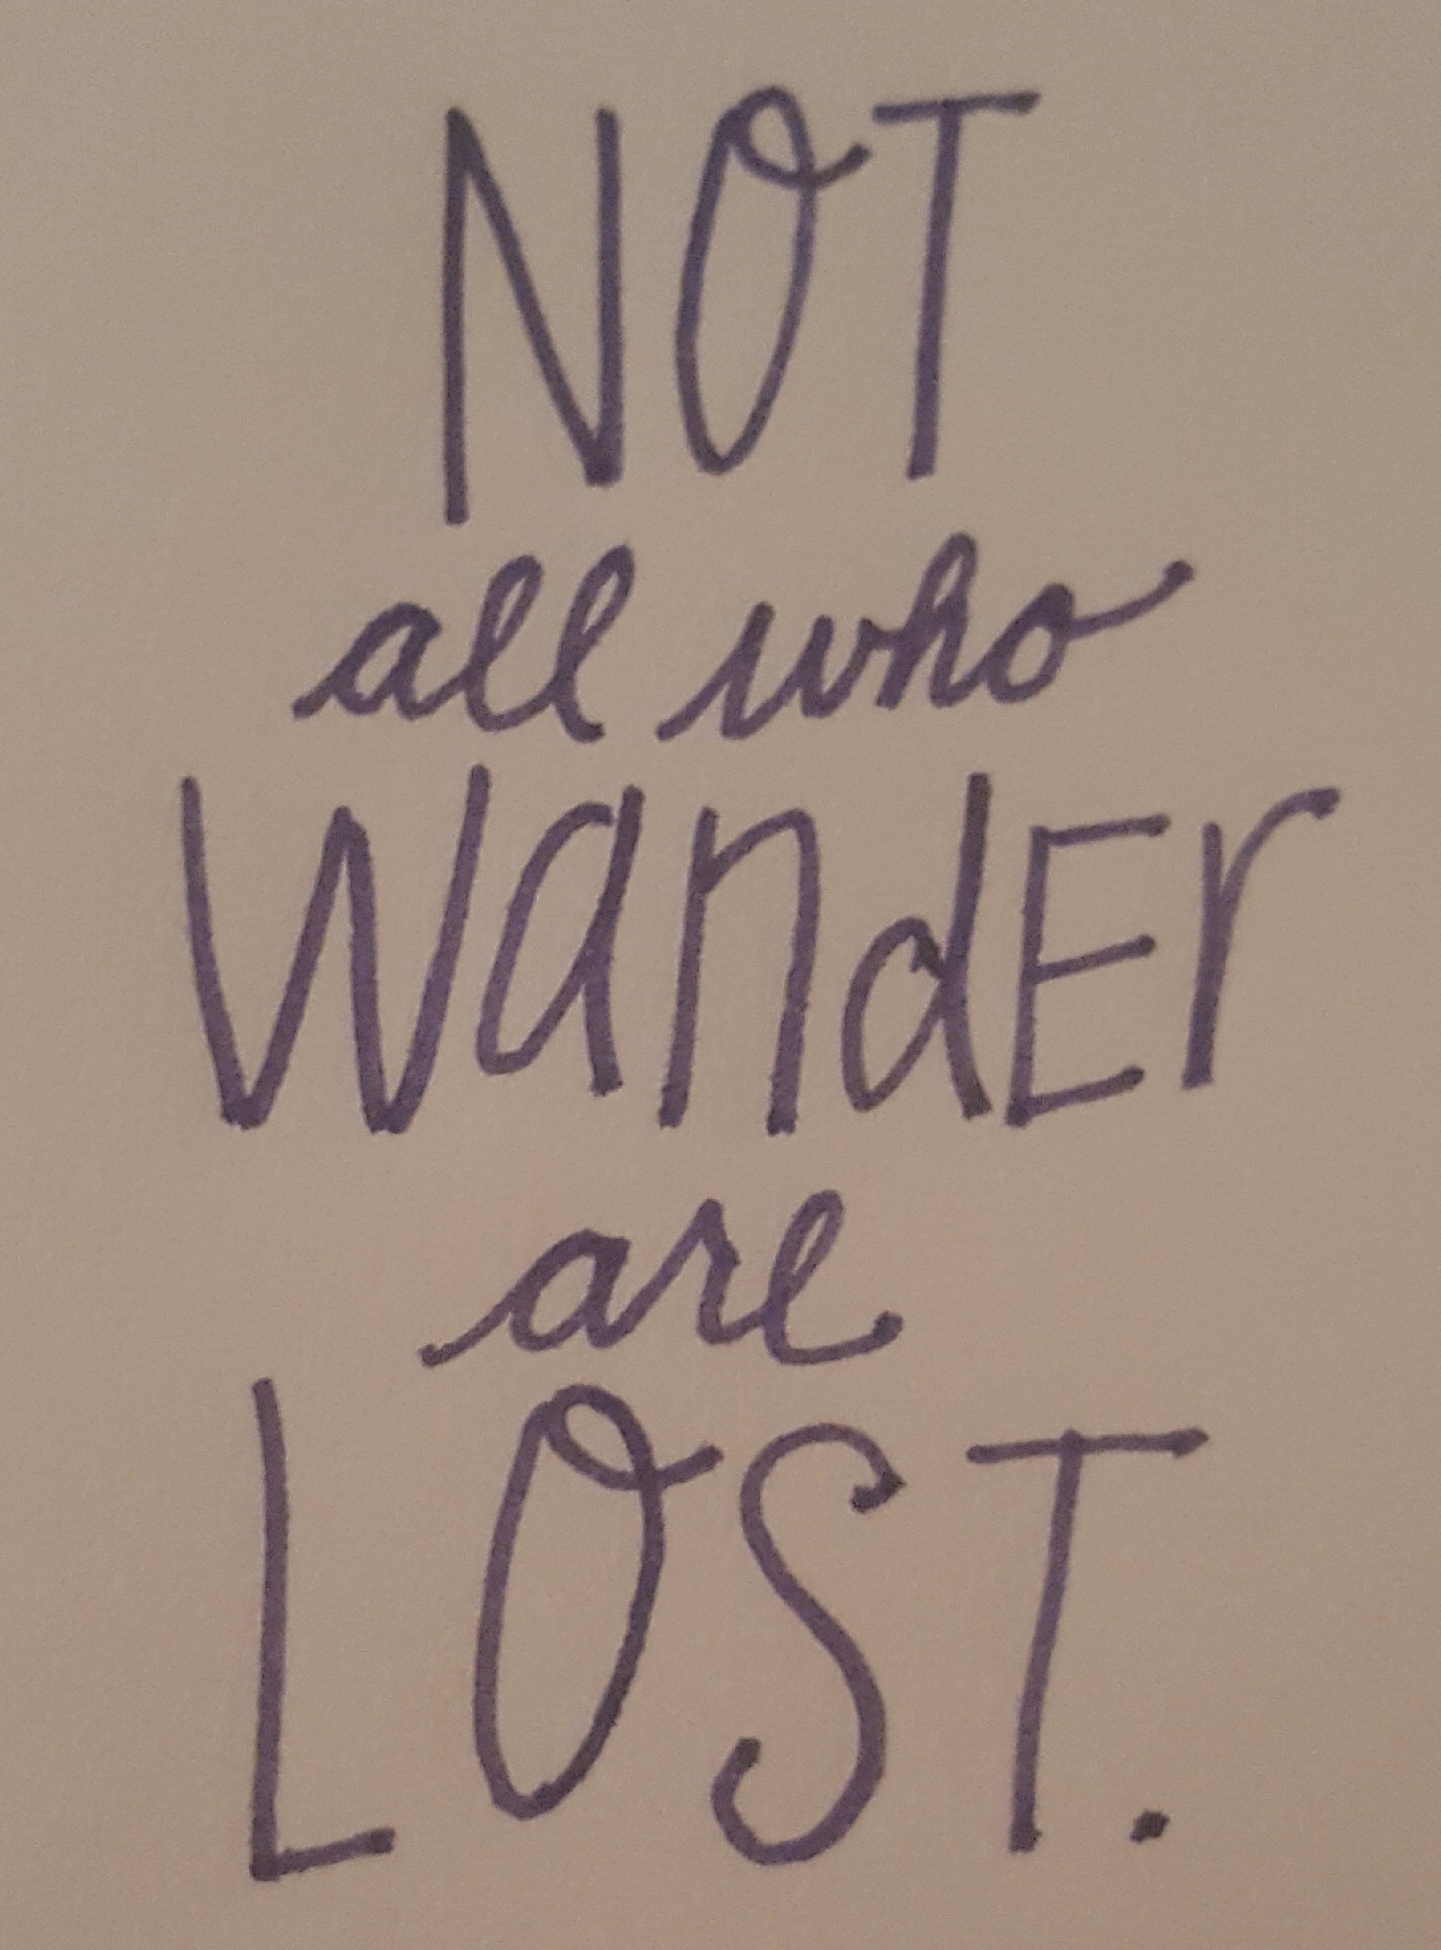 NOT
all who
WandEr
are
LOST.